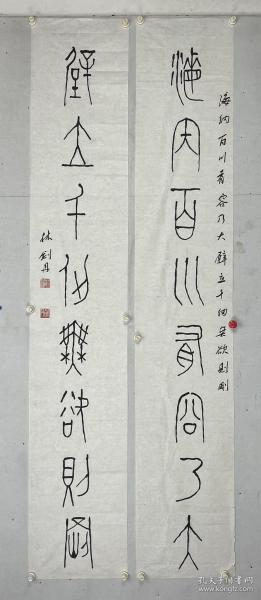 海内百川有容乃大
海纳百川有容乃大壁立千仞无欲则刚
壁立千仞無欲則剛
林剑丹
孔夫子旧书网